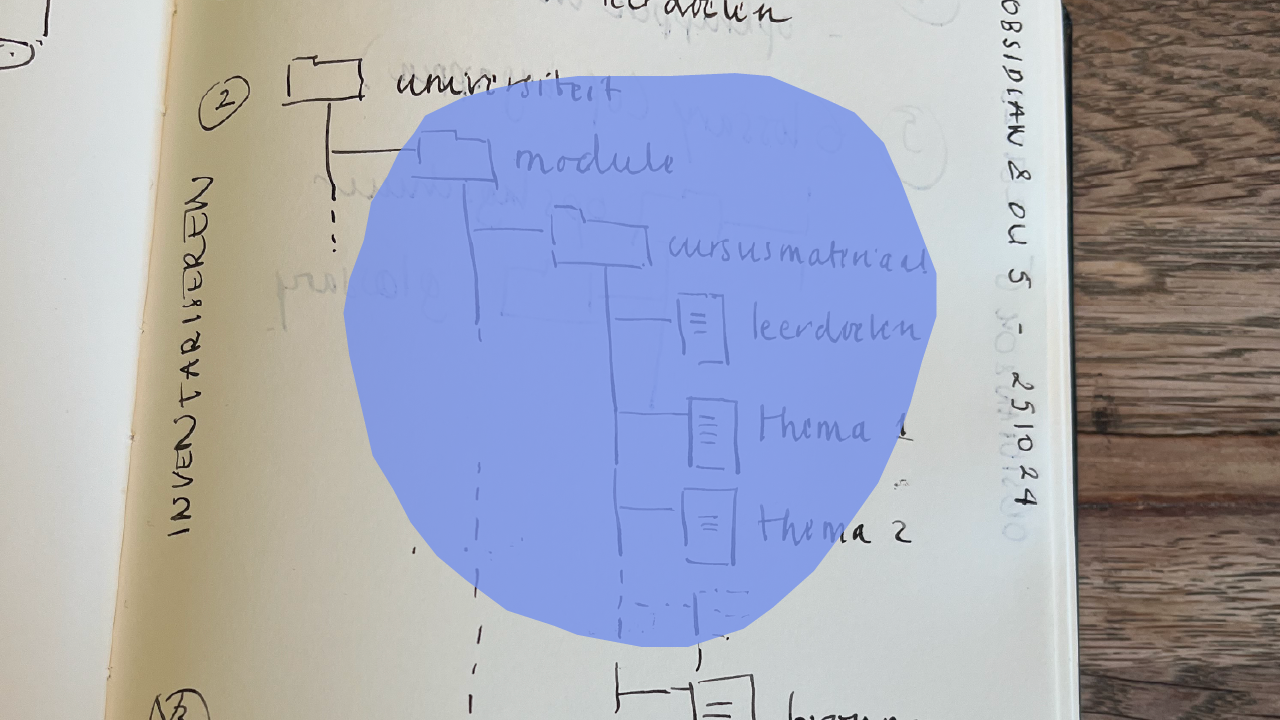 leerdoelen
2 universiteit
module
cursusmateriaal
leerdoelen
thema 1
thema 2
INVENTARISEREN
OBSIDIAN & OU 5 - 251024